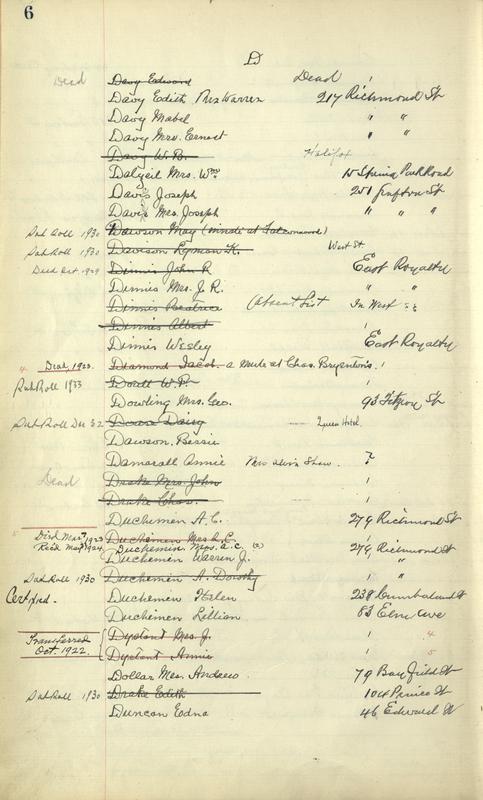 6
D
Dead Davy Edward Dead
Davy Edith Mrs Warren 217 Richmond St
Davy Mabel " "
Davy Mrs. Ernest " "
Davy W. B. Halifax
Dalziel Mrs. Wm 15 Spring Park Road
Davis Joseph 251 Grafton St
Davis Mrs. Joseph " " "
Sub Roll 1930 Dawson May (inmate at Falconwood)
Sub Roll 1930 Davison Lyman H. West St.
Died Oct. 1929 Dinnis John R East Royalty
Dinnis Mrs. J. R. " "
Dinnis Beatrice (Absent List In West
Dinnis Albert
Dinnis Wesley East Royalty
Dead, 1923. Diamond Jacob. a mute at Chas. Bryenton's.
Sub Roll 1933 Doull W. P.
Dowling Mrs. Geo. 93 Fitzroy St
Sub Roll Dec 32 Daisy Queen Hotel
Dawson. Bessie
Damarall Annie Mrs Shaw. ?
Dead Drake Mrs. John
Drake Chas.
Duchemen A. C. 279 Richmond St
5 Died Mar. 1923 Duchemen Mrs A. C.
Rec'd May 1924 Duchemin Mrs. A. C. (2) 279 Richmond St
Duchemen Warren J. "
Sub Roll 1930 Duchemen A. Dorothy "
Certified. Duchemen Helen 238 Cumberland St
Duchemen Lillian 83 Elm Ave
Transferred Dystant Mrs. J. 4
Oct. 1922. Dystant Annie 5
Dollar Mrs. Andrew 79 Bayfield St
Sub Roll 1930 Drake Edith 104 Prince St
Duncan Edna 46 Edward St